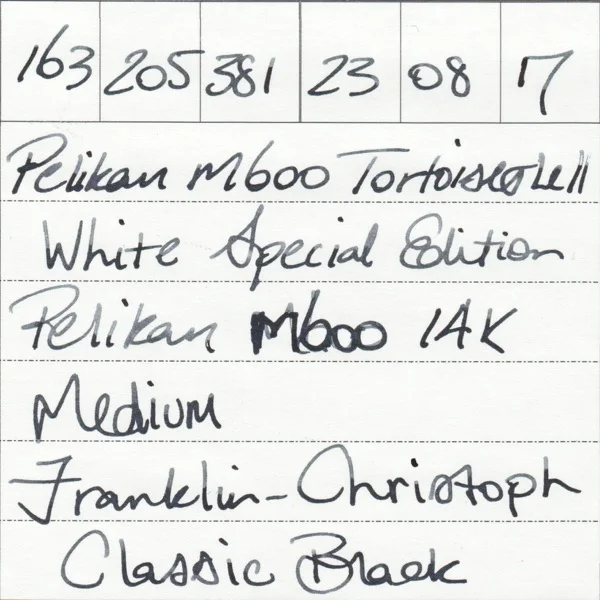 163 205 381 23 08 17
Pelikan M600 Tortoiseshell
White Special Edition
Pelikan M600 14K
Medium
Franklin-Christoph
Classic Black